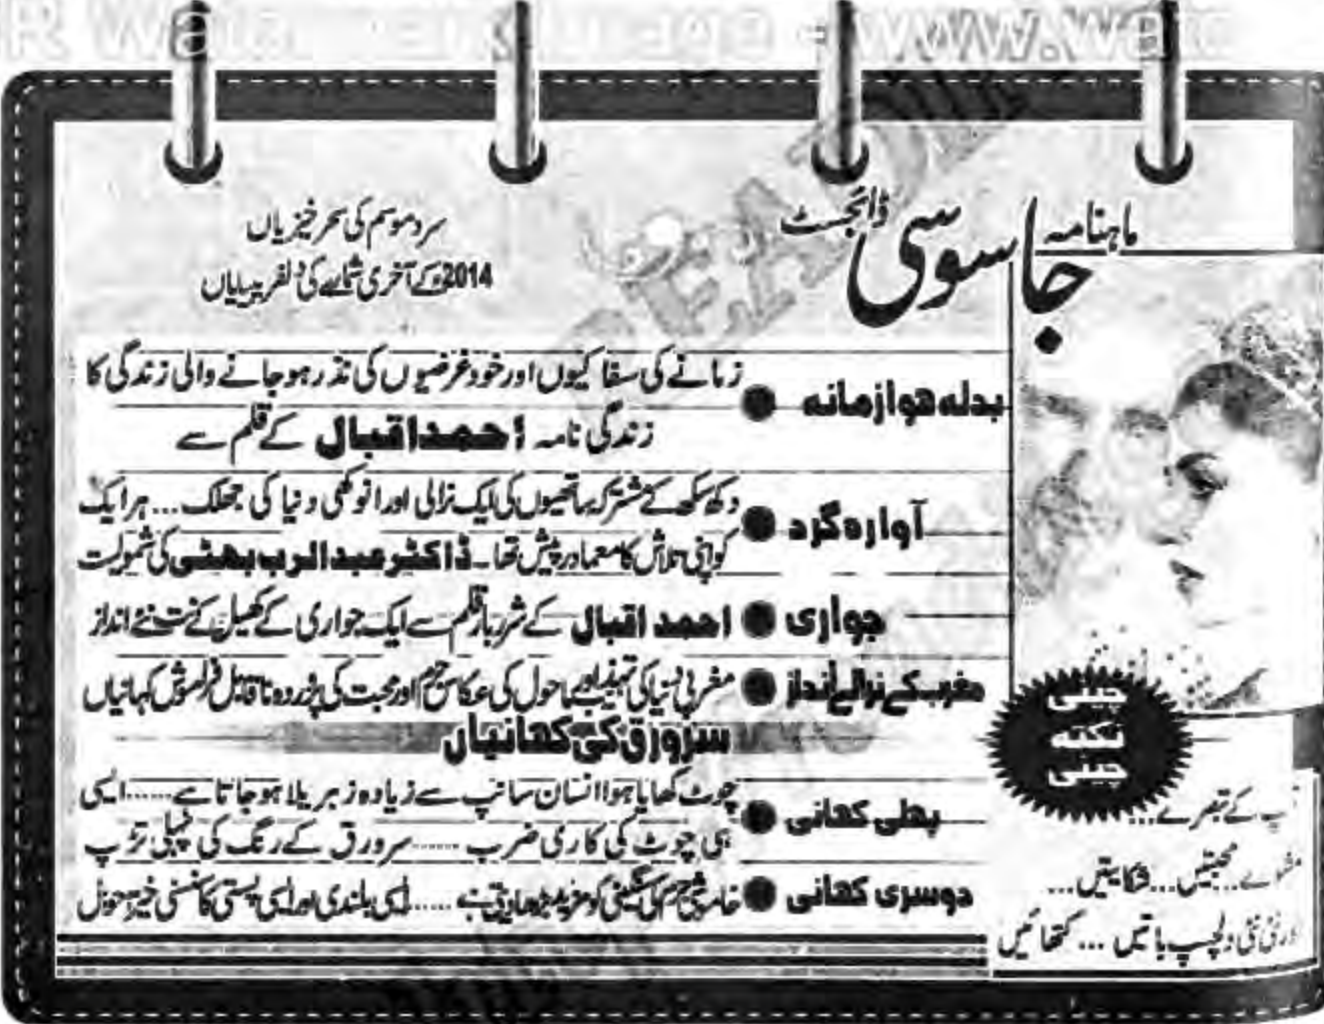 ماہنامہ جاسوسی ڈائجسٹ
سرد موسم کی سحر خیزیاں
2014ء کے آخری شمارے کی دلفریبیاں
بدلہ ہوا زمانہ ● زمانے کی سفاکیوں اور خود غرضیوں کی نذر ہو جانے والی زندگی کا
زندگی نامہ احمد اقبال کے قلم سے
آوارہ گرد ● دکھ سکھ کے مشترکہ ساتھیوں کی ایک نرالی اور انوکھی دنیا کی جھلک... ہر ایک
کو اپنی تلاش کا معما درپیش تھا۔ ڈاکٹر عبدالرب بھٹی کی شمولیت
جواری ● احمد اقبال کے شرر بار قلم سے ایک جواری کے کھیل کے نت نئے انداز
مغرب کے نرالے انداز ● مغربی دنیا کی تہذیب اور ماحول کی عکاس جرم اور محبت کی ناقابل فراموش کہانیاں
سرورق کی کہانیاں
پہلی کہانی ● چوٹ کھایا ہوا انسان سانپ سے زیادہ زہریلا ہو جاتا ہے..... ایسی
ہی چوٹ کی کاری ضرب ...... سرورق کے رنگ کی پہلی تڑپ
دوسری کہانی ● خاموشی جرم کی سنگینی کو مزید بڑھا دیتی ہے ..... ایسی بلندی اور ایسی پستی کا سنسنی خیز احوال
چینی
نکتہ
چینی
کے تبصرے...
مشورے... محبتیں... شکایتیں...
نئی نئی دلچسپ باتیں ... کتھائیں
READING
R Watermark www.wat